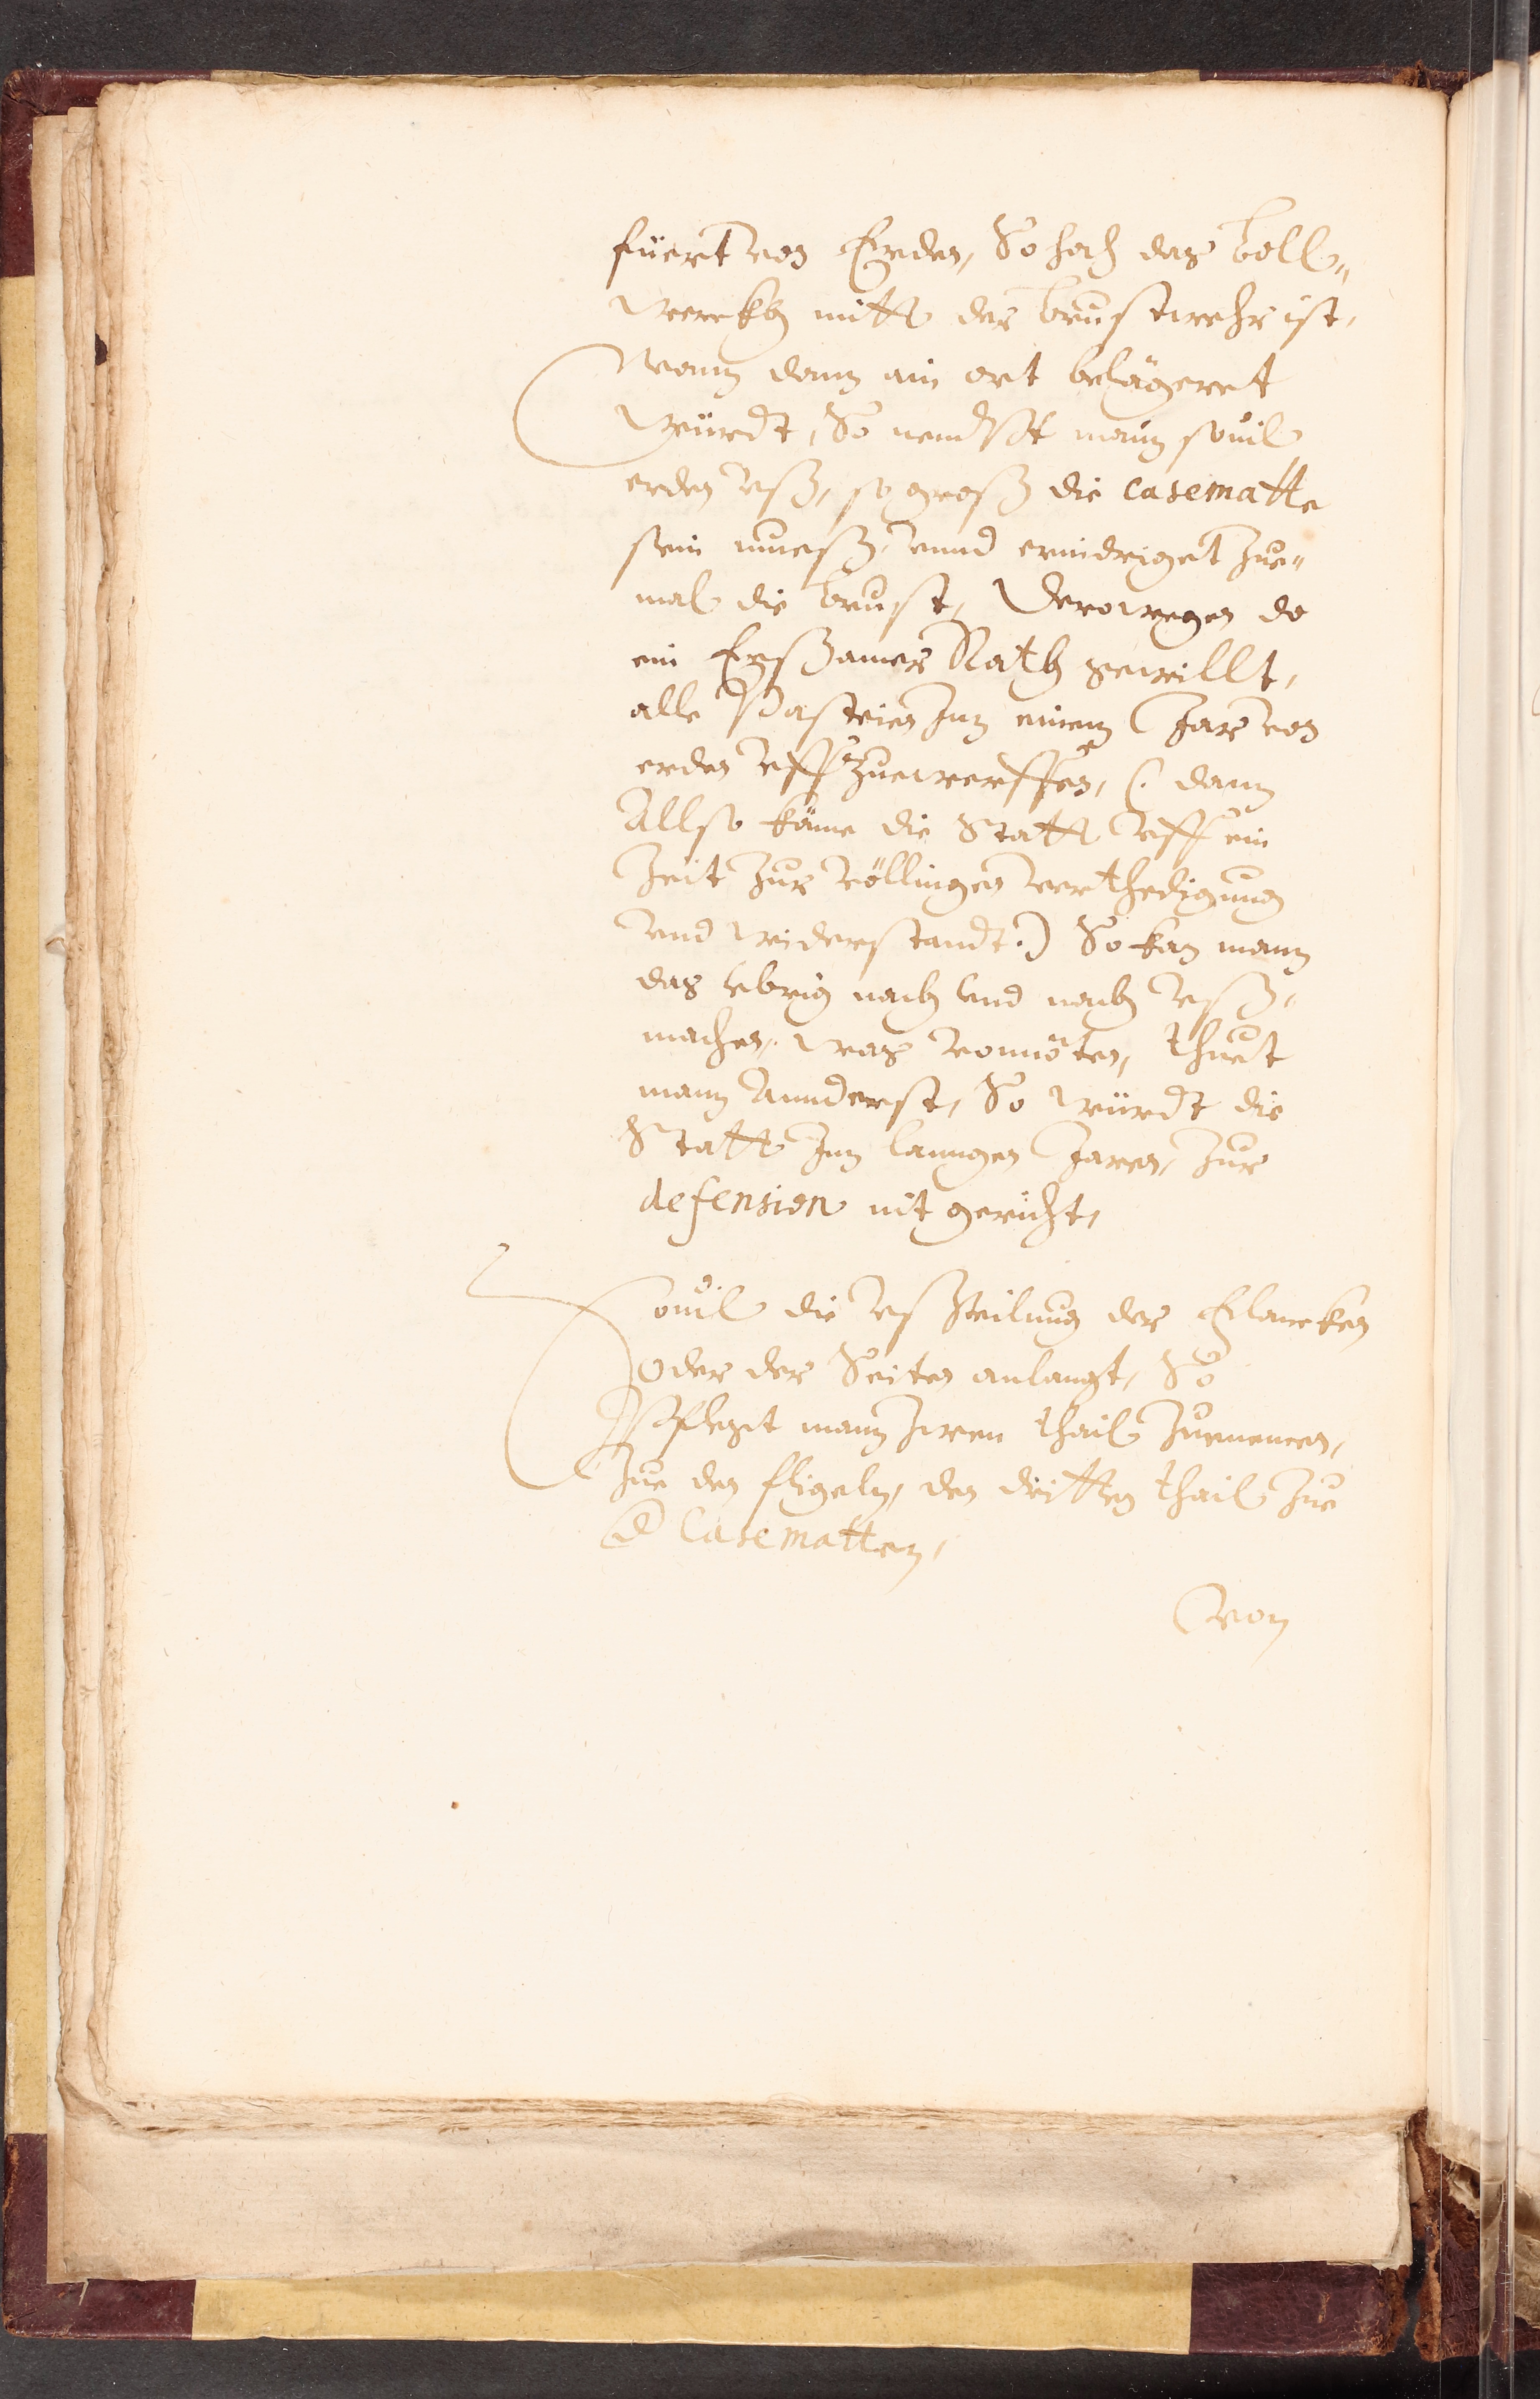 füert von Erden, So hoch das boll„
werckh mitt der brustwehr ist,
Wann dann ain ort belägeret
würdt, So nembt mann souil
erden uß, so groß die casematte
sein mueß, vnnd ernidriget zue„
mal die brust, Derowegen do
ein Ersamer Rath gewillt,
alle Pasteien Inn einem Jar von
erden uff zuewerffen, (: dann
Allso käme die Statt uff ein
Zeit zur völlingen verthedigung
vnd widerstandt :) So kan mann
das vbrig nach vnd nach uß„
machen, was vonnöten, thuet
mann Annderst, So würdt die
Statt Inn lanngen Jaren, zur
defension nit gericht,
Souil die ußtheilung der Flancken
oder der Seiten anlangt, So
Pflegt mann zween thail zunemen,
zue den fligeln, den dritten thail zue
d Casematten,
Von